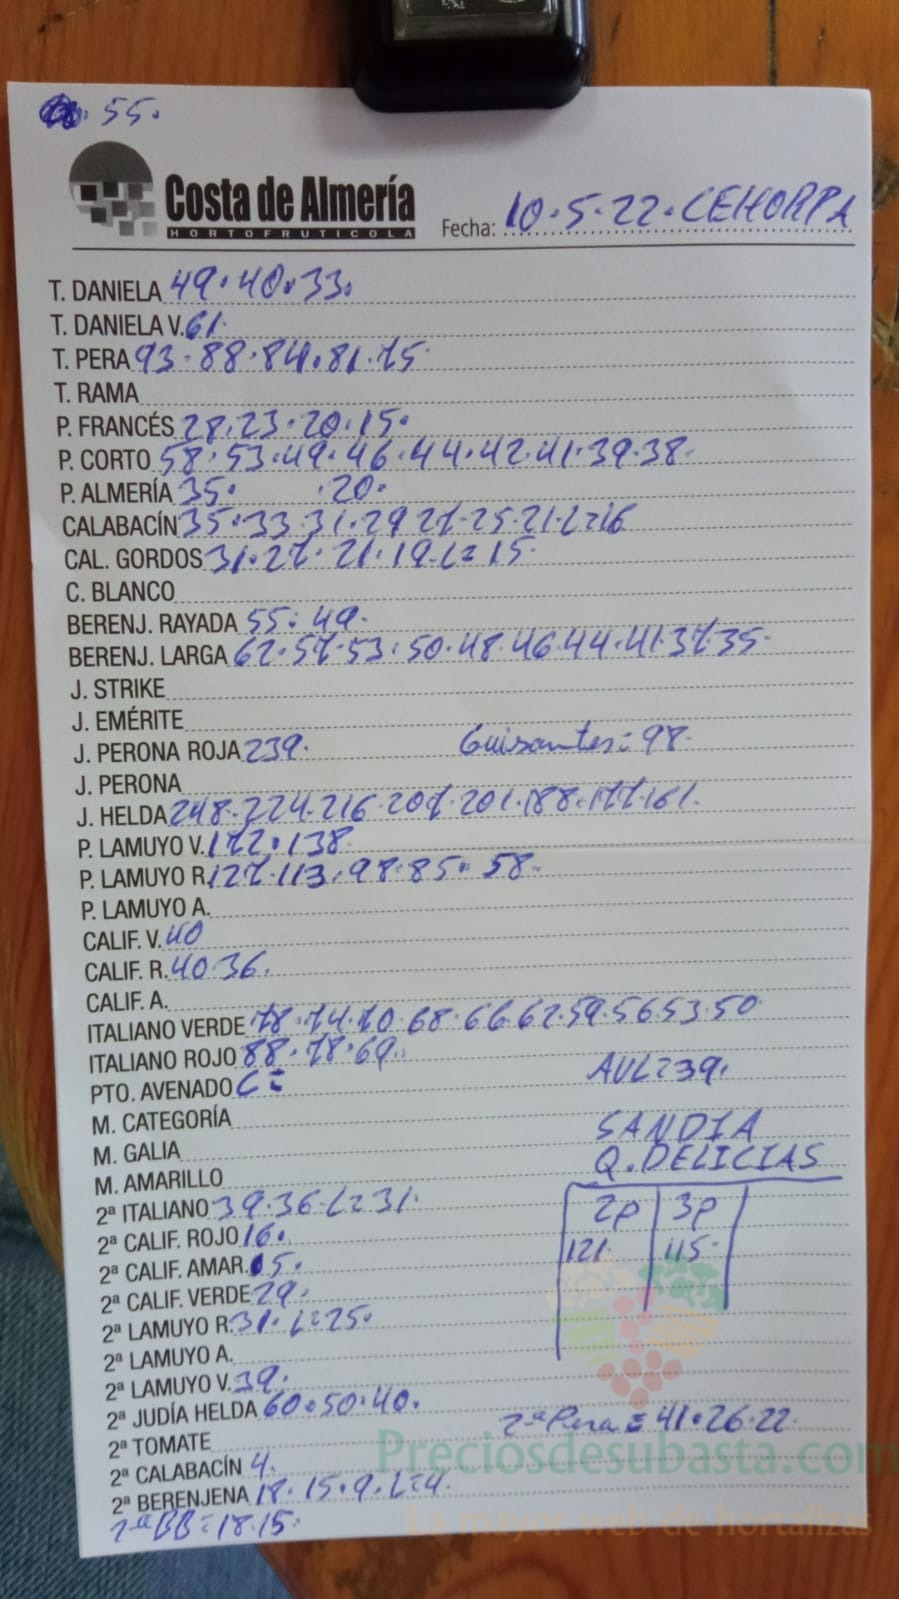 55.
Costa de Almería
HORTOFRUTICOLA
Fecha: 10.5.22. CEHORPA
T. DANIELA 49.40.33.
T. DANIELA V. 61.
T. PERA 93.88.84.81.75
T. RAMA
P. FRANCÉS 28.23.20.15.
P. CORTO 58.53.49.46.44.42.41.39.38
P. ALMERÍA 35. .20.
CALABACÍN 35.33.31.29 27.25.21.L=16
CAL. GORDOS 31.27.21.19.L=15
C. BLANCO
BERENJ. RAYADA 55.49.
BERENJ. LARGA 62.57.53.50.48.46.44.41.37.35.
J. STRIKE
J. EMÉRITE
J. PERONA ROJA 239. Guisantes=98.
J. PERONA
J. HELDA 248.224.216.207.201.188.177.161.
P. LAMUYO V. 172.138.
P. LAMUYO R. 127.113.98.85.58.
P. LAMUYO A.
CALIF. V. 40
CALIF. R. 40.36.
CALIF. A.
ITALIANO VERDE 78.74.70.68.66.62.59.56.53.50
ITALIANO ROJO 88.78.69.
PTO. AVENADO C= AVL=39.
M. CATEGORÍA
M. GALIA SANDIA
M. AMARILLO Q. DELICIAS
2ª ITALIANO 39.36.L=31. 2p 3p
2ª CALIF. ROJO 16. 121. 115.
2ª CALIF. AMAR. 5.
2ª CALIF. VERDE 29.
2ª LAMUYO R. 31.L=25.
2ª LAMUYO A.
2ª LAMUYO V. 39.
2ª JUDÍA HELDA 60.50.40.
2ª TOMATE 2ª Pera=41.26.22.
2ª CALABACÍN 4.
Preciosdesubasta.com
2ª BERENJENA 18.15.9.L=4.
2ª BB=18.15.
La mayor web de hortalizas